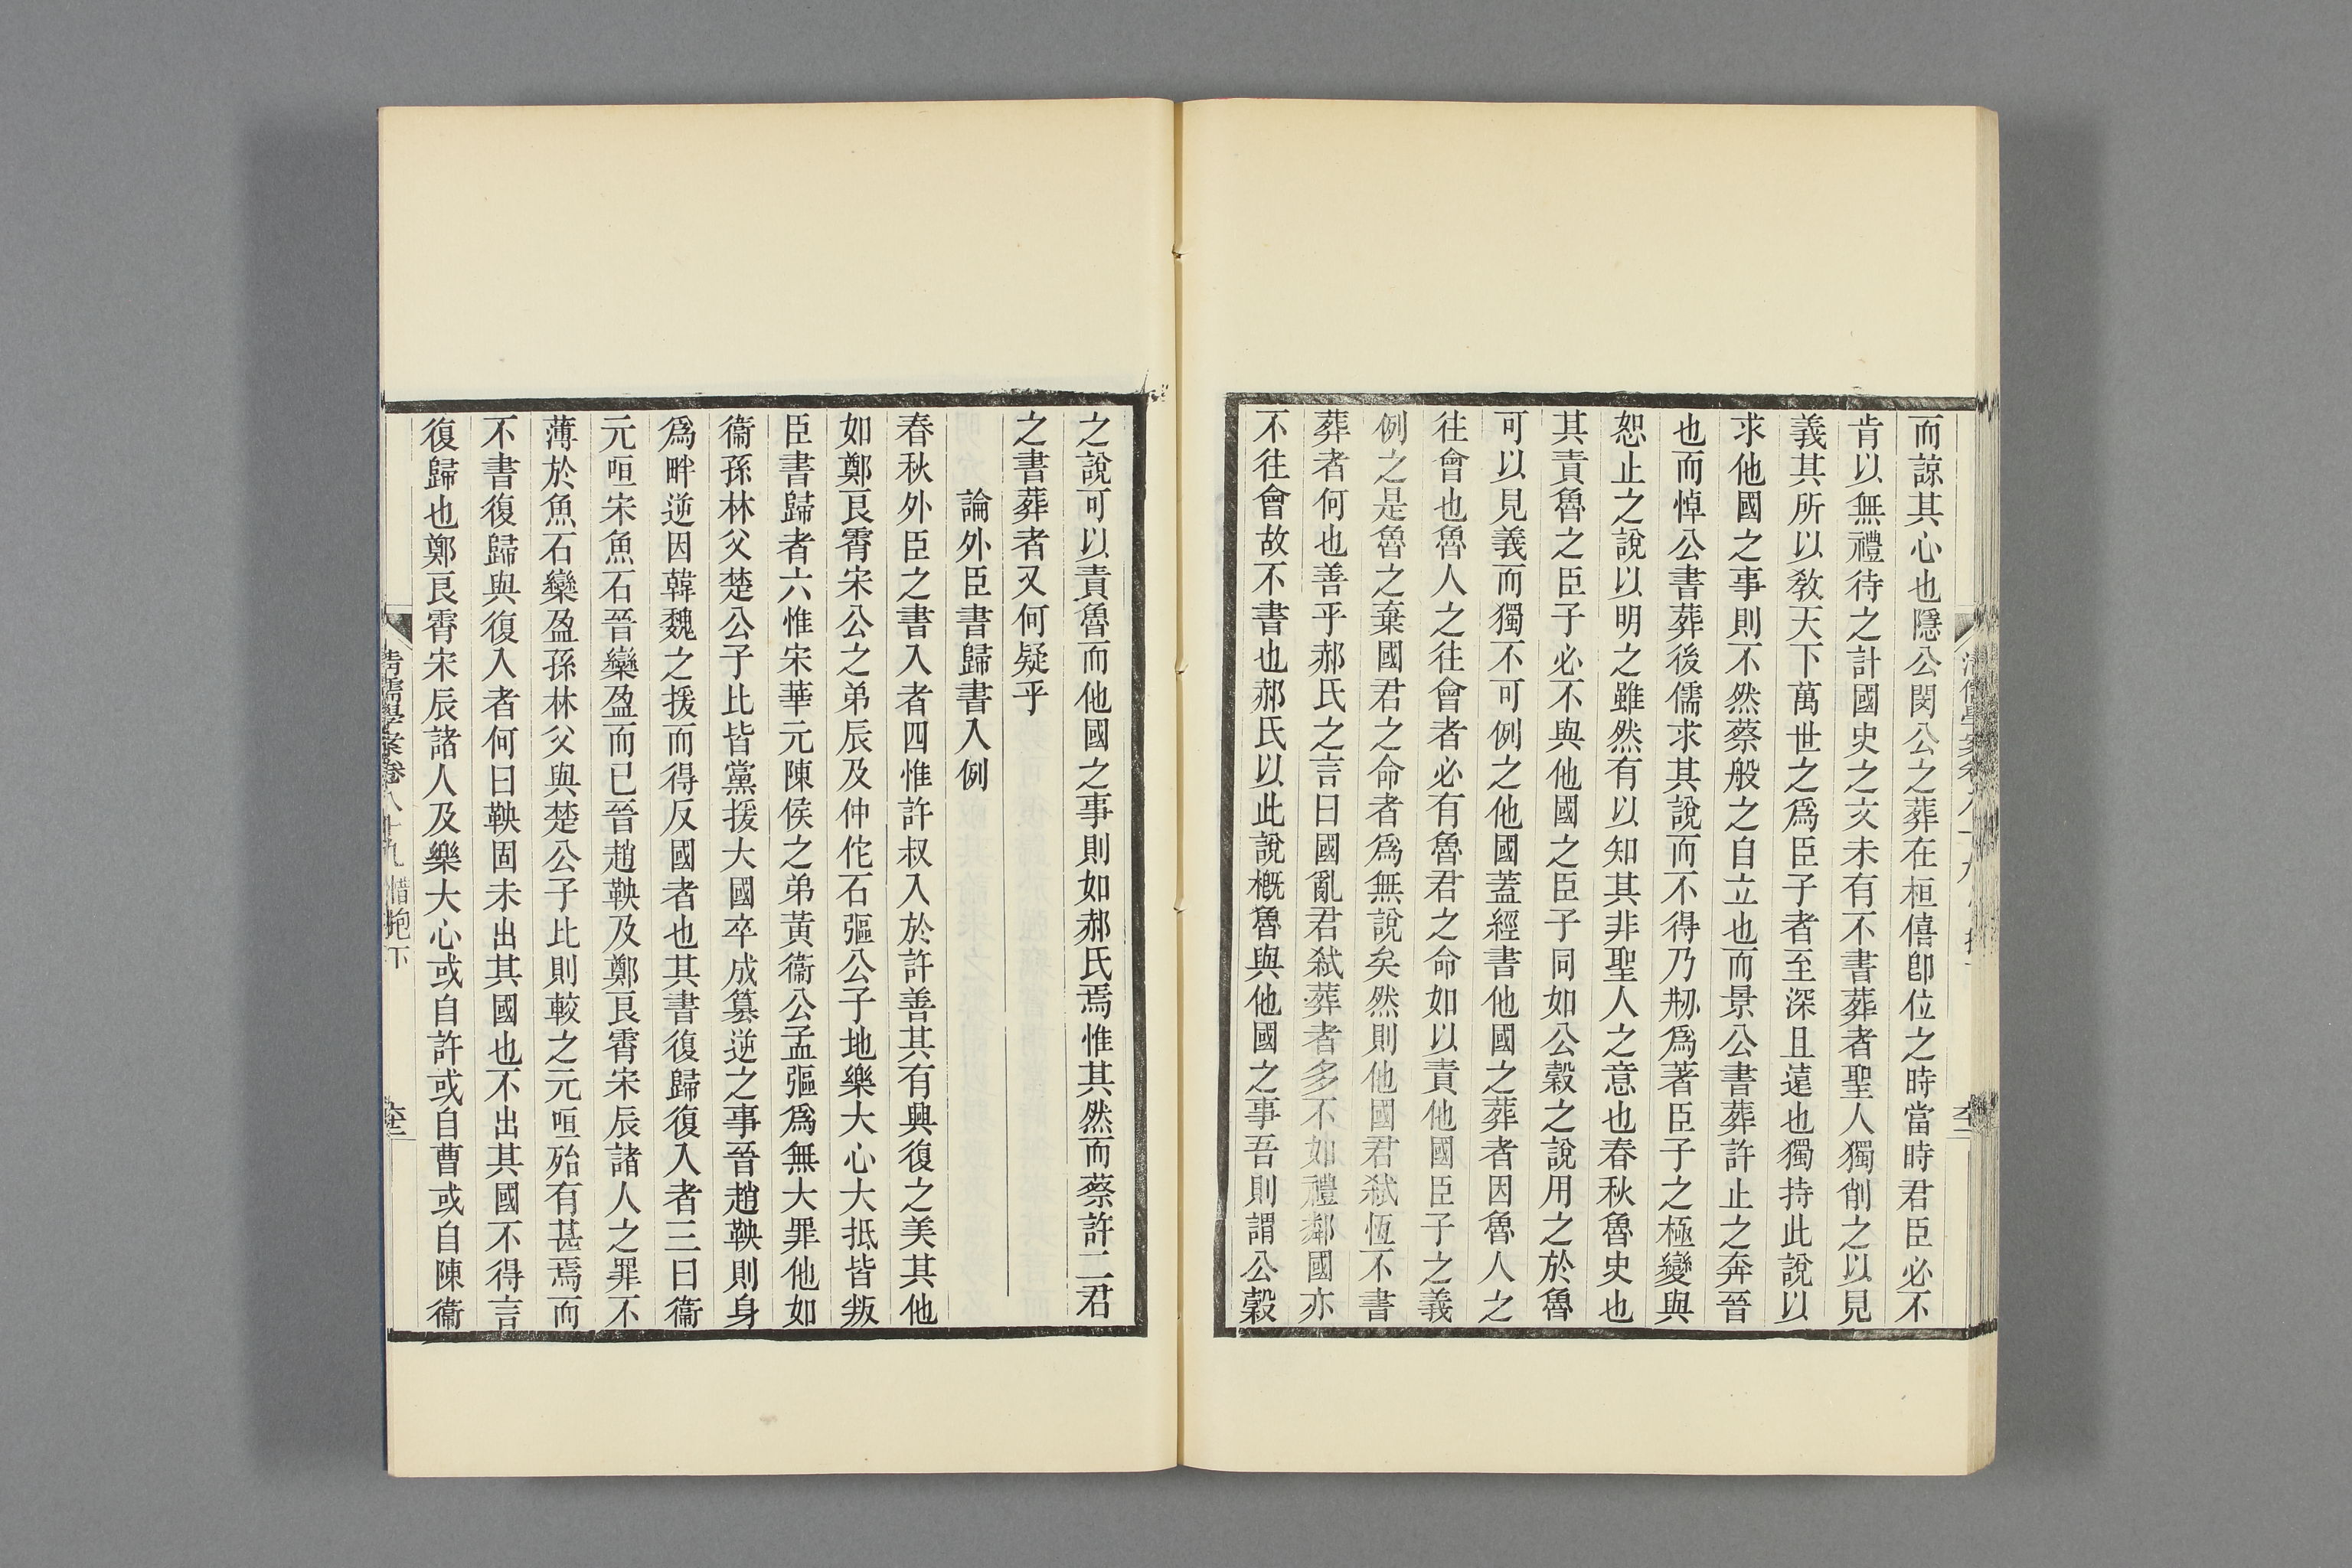 而諒其心也隱公閔公之葬在桓僖卽位之時當時君臣必不
肯以無禮待之計國史之文未有不書葬者聖人獨削之以見
義其所以敎天下萬世之爲臣子者至深且遠也獨持此說以
求他國之事則不然蔡般之自立也而景公書葬許止之奔晉
也而悼公書葬後儒求其說而不得乃刱爲著臣子之極變與
恕止之說以明之雖然有以知其非聖人之意也春秋魯史也
其責魯之臣子必不與他國之臣子同如公穀之說用之於魯
可以見義而獨不可例之他國蓋經書他國之葬者因魯人之
往會也魯人之往會者必有魯君之命如以責他國臣子之義
例之是魯之棄國君之命者爲無說矣然則他國君弑恆不書
葬者何也善乎郝氏之言曰國亂君弑葬者多不如禮鄰國亦
不往會故不書也郝氏以此說槪魯與他國之事吾則謂公穀
之說可以責魯而他國之事則如郝氏焉惟其然而蔡許二君
之書葬者又何疑乎
論外臣書歸書入例
春秋外臣之書入者四惟許叔入於許善其有興復之美其他
如鄭良霄宋公之弟辰及仲佗石彄公子地樂大心大抵皆叛
臣書歸者六惟宋華元陳侯之弟黃衞公孟彄爲無大罪他如
衞孫林父楚公子比皆黨援大國卒成簒逆之事晉趙鞅則身
爲畔逆因韓魏之援而得反國者也其書復歸復入者三曰衞
元咺宋魚石晉欒盈而已晉趙鞅及鄭良霄宋辰諸人之罪不
薄於魚石欒盈孫林父與楚公子比則較之元咺殆有甚焉而
不書復歸與復入者何曰鞅固未出其國也不出其國不得言
復歸也鄭良霄宋辰諸人及樂大心或自許或自曹或自陳衞
清儒學案卷八十九 惜抱下